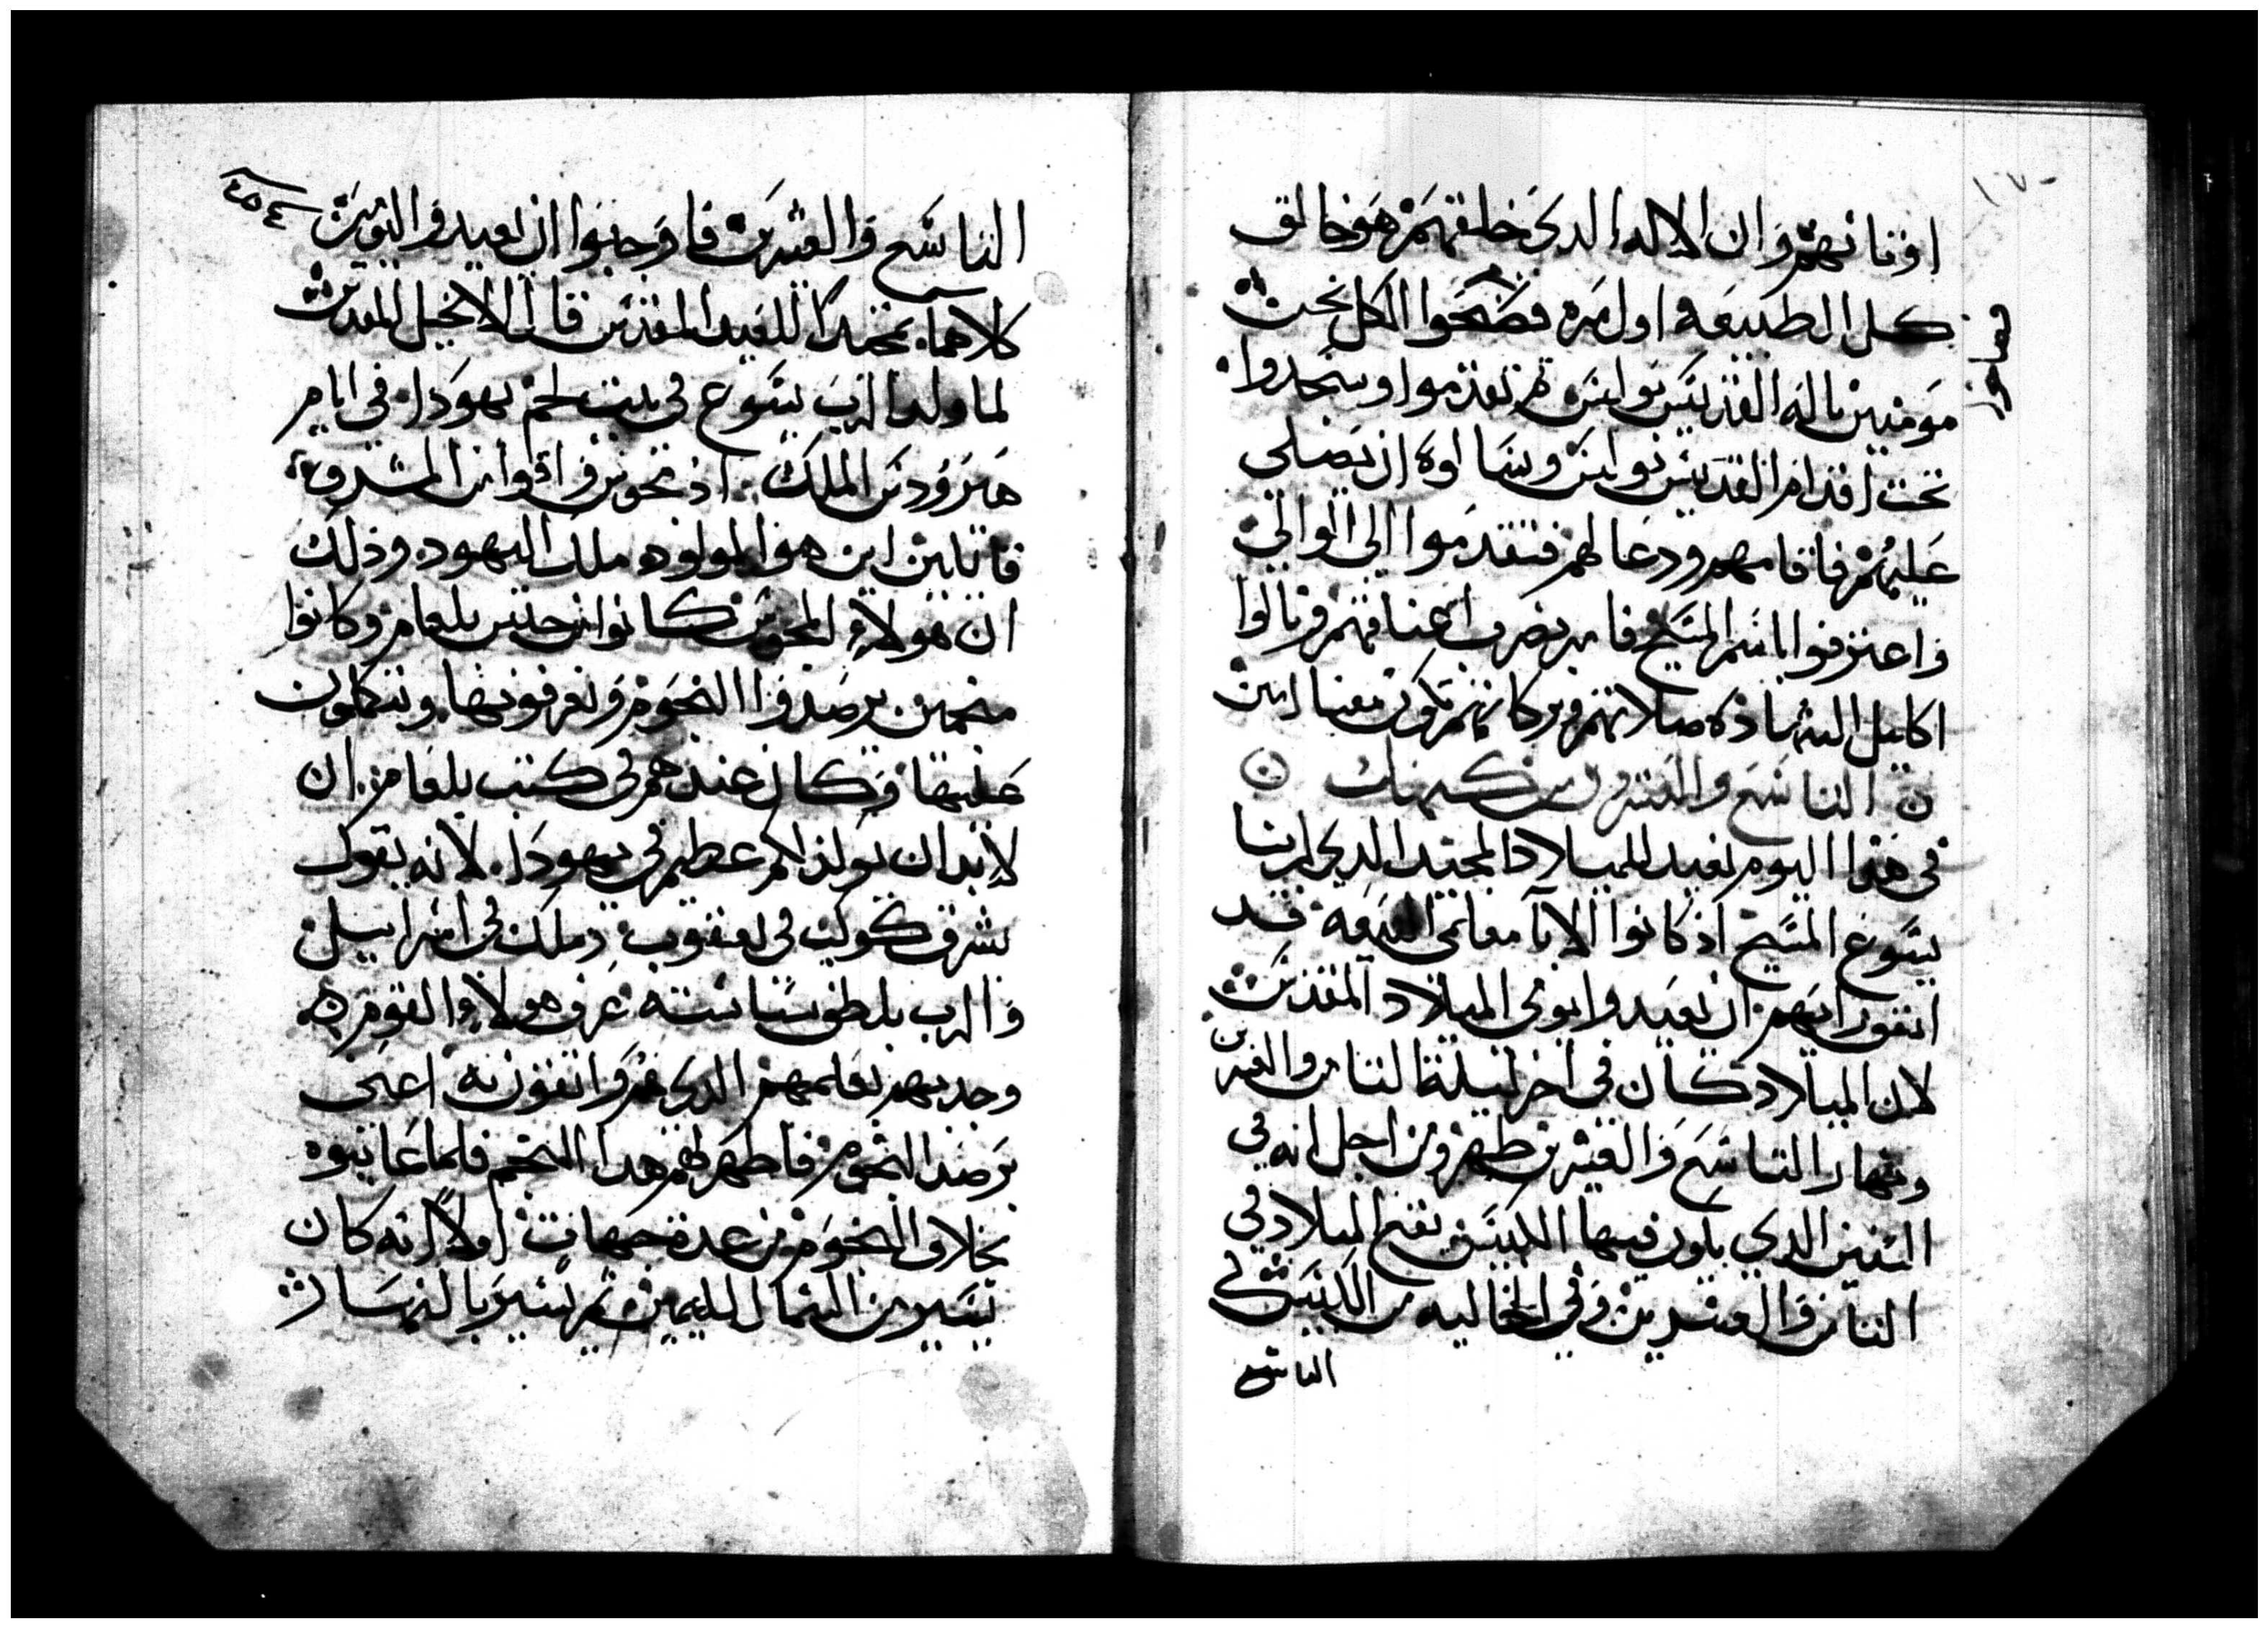 اوثانهم وان الاله الدى خلقهم هو خالق
كل الطبيعه اول مره فصحوا الكل نحن
مومنين باله القديس بولس ثم تقدموا وسجدوا
تحت اقدام القديس بولس وسالوه ان يصلى
عليهم فاقامهم ودعا لهم فتقدموا الى الوالى
واعترفوا باسم المسيح فامر بضرب اعناقهم ونالوا
اكاليل الشهاده صلاتهم وبركاتهم تكون معنا امين
التاسع والعشرون من كيهك
فى هدا اليوم نعيد للميلاد المجيد الدى لربنا
يسوع المسيح اذ كانوا الابا معلمى البيعه قد
اتفق رايهم ان نعيد وا يومى الميلاد المقدس
لان الميلاد كان فى اخر ليلة التامن والعشرين
ونهار التاسع والعشرين ظهر ومن اجل انه فى
السنين الدي يكون فيها الكبيس يقع الميلاد في
التامن والعشرين وفي الخاليه من الكبيس في
التاسع
٤٥٤
التاسع والعشرين فاوجبوا ان نعيد واليومين
كلاهما تمجيدا للعيد المقدس قال الانجيل المقدس
لما ولد الرب يسوع فى بيت لحم يهودا في ايام
هيرودس الملك اذ مجوس وافوا من المشرق
قايلين اين هو المولود ملك اليهود وذلك
ان هولاء المجوس كانوا من جنس بلعام وكانوا
منجمين يرصدوا النجوم ويعرفونها ويتكلمون
عليها وكان عندهم فى كتب بلعام ان
لابد ان يولد امر عظيم فى يهودا لانه يقول
يشرق كوكب فى يعقوب وملك فى اسراييل
والرب بلطف سياسته عرف هولاء القوم
وجدبهم بعلمهم الدي هم واتقونه اعنى
برصد النجوم فاظهر لهم هدا النجم فلما عاينوه
بخلاف النجوم من عدة جهات اولا انه كان
يسير من الشمال لليمين ثم يسير بالنهار